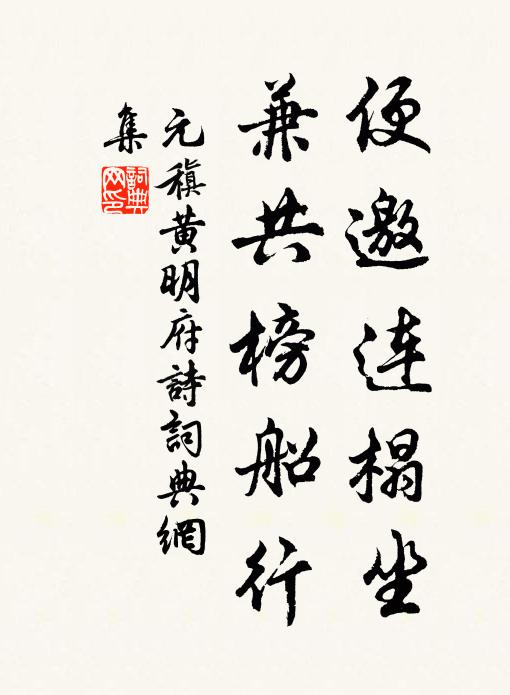 便邀连榻坐
兼共榜船行
元稹黄明府詩詞典網
集
詞典网印